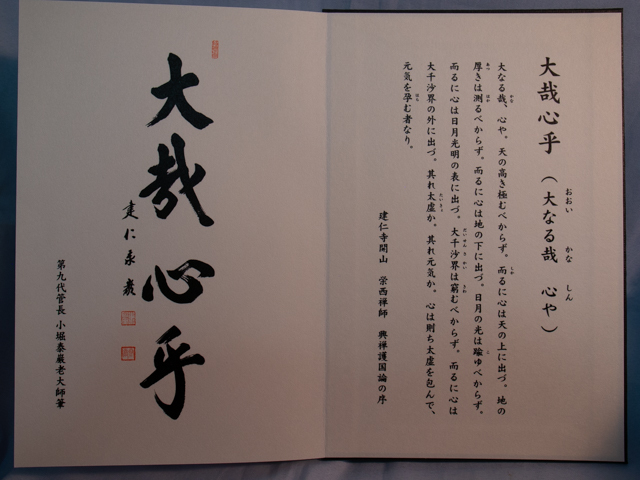 大哉心乎（大なる哉　心や）
おおい　かな　しん
大なる哉、心や。天の高き極むべからず。而るに心は天の上に出づ。地の
かな　しか
厚きは測るべからず。而るに心は地の下に出づ。日月の光は踰ゆべからず。
あつ　はか　こ
而るに心は日月光明の表に出づ。大千沙界は窮むべからず。而るに心は
だいせんしゃかい　きわ
大千沙界の外に出づ。其れ太虚か。其れ元気か。心は則ち太虚を包んで、
たいきょ
元気を孕む者なり。
はら
建仁寺開山　栄西禅師　興禅護国論の序
大哉心乎
建仁泰巖
第九代管長　小堀泰巖老大師筆